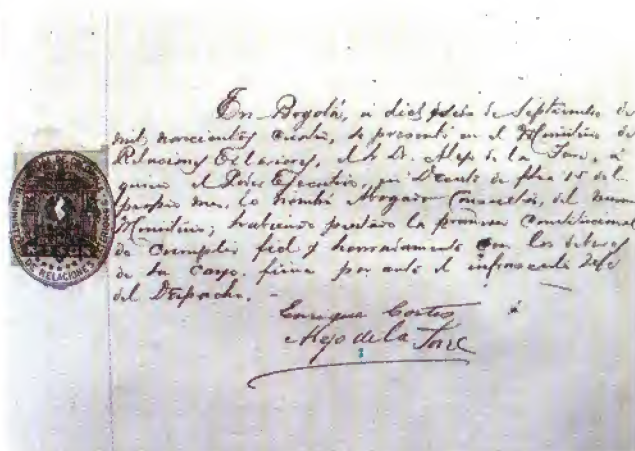 En Bogotá, a diez y seis de Septiembre de
mil novecientos cuatro, se presentó en el Ministerio de
Relaciones Exteriores, el Sr. Dr. Alejo de la Torre, a
quien el Poder Ejecutivo, por Decreto de fecha 15 del
propio mes, lo nombró Abogado Consultor, del mismo
Ministerio; habiendo prestado la promesa Constitucional
de cumplir fiel y honradamente con los deberes
de su cargo, firma por ante el infrascrito Jefe
del Despacho.
Enrique Cortes
Alejo de la Torre
DE RELACIONES